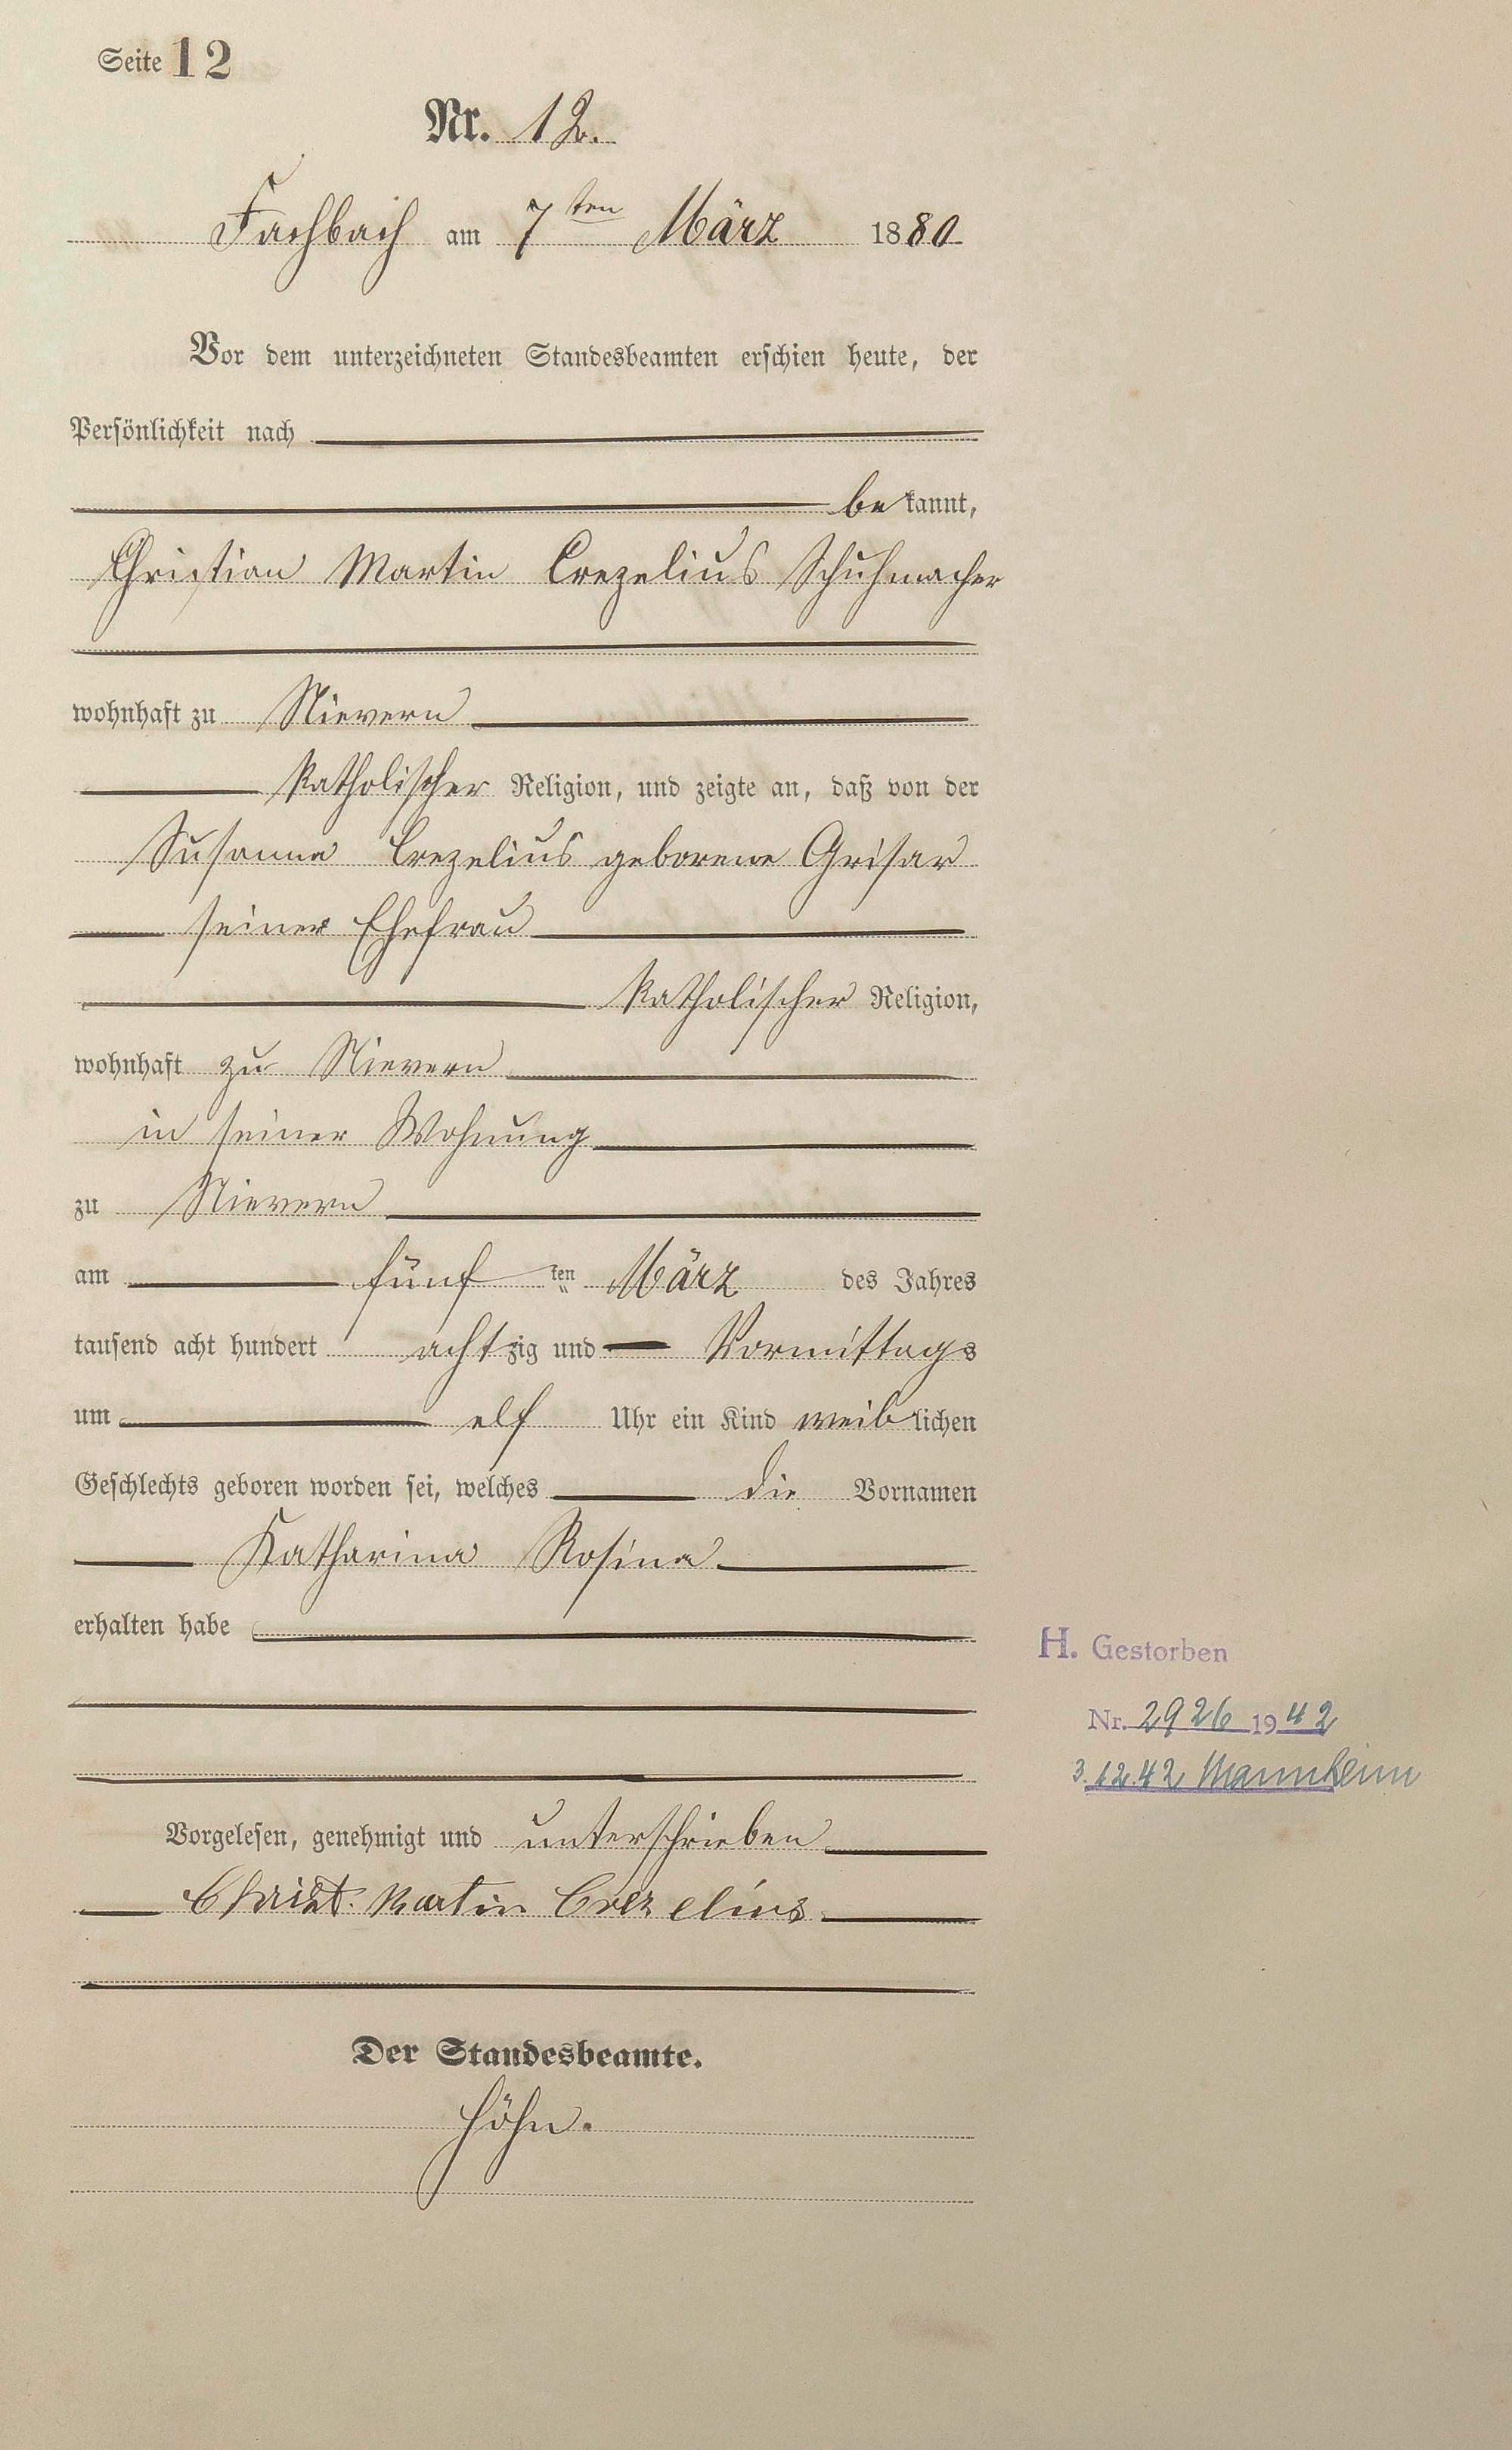 Seite 12
Nr. 12.
Fachbach am 7ten März 1880
Vor dem unterzeichneten Standesbeamten erschien heute, der
Persönlichkeit nach
bekannt,
Christian Martin Crezelius Schuhmacher
wohnhaft zu Nievern
katholischer Religion, und zeigte an, daß von der
Susanna Crezelius geborene Grisar
seiner Ehefrau
katholischer Religion,
wohnhaft zu Nievern
in seiner Wohnung
zu Nievern
am fünf ten März des Jahres
tausend acht hundert achtzig und Vormittags
um elf Uhr ein Kind weiblichen
Geschlechts geboren worden sei, welches die Vornamen
Katharina Rosina
erhalten habe
H. Gestorben
Nr. 2926 1942
3.12.42 Mannheim
Vorgelesen, genehmigt und unterschrieben
Christ. Martin Crezelius
Der Standesbeamte.
Höhn.